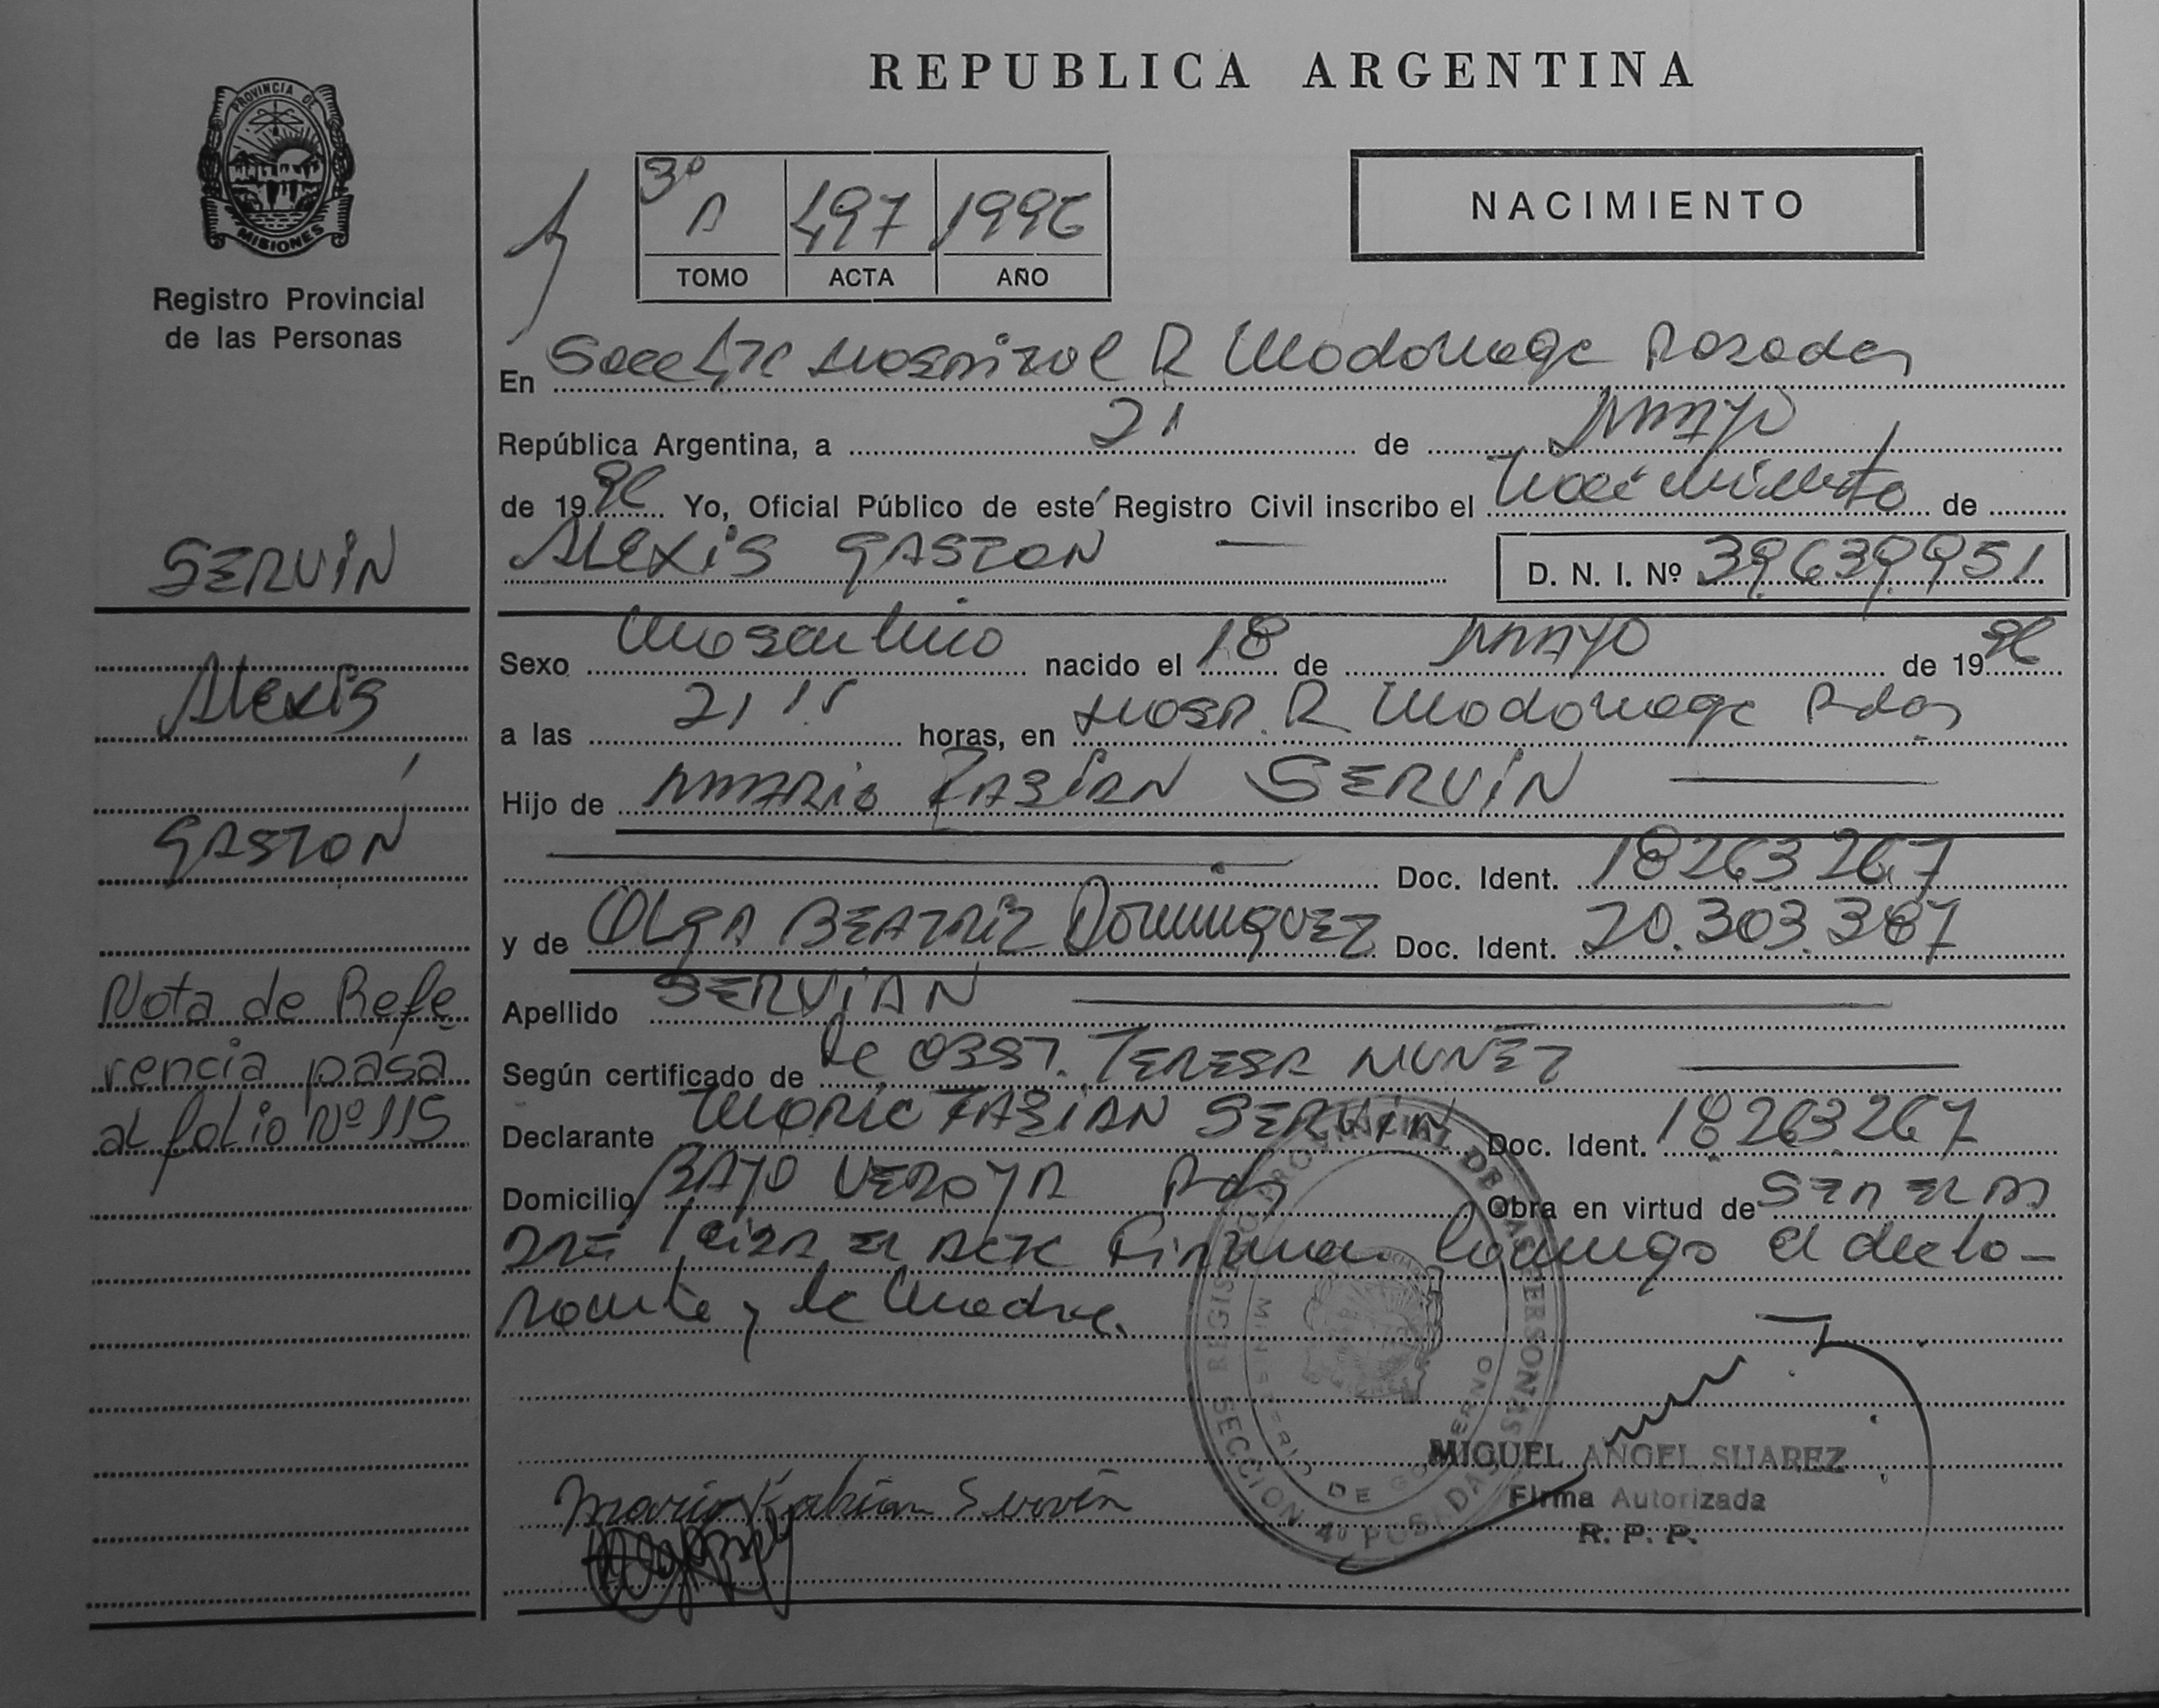 REPUBLICA ARGENTINA
PROVINCIA DE MISIONES
Registro Provincial
de las Personas
3º A 497 1996
TOMO ACTA AÑO
NACIMIENTO
En Secc 4ta Hospital R Madariaga Posadas
República Argentina, a 21 de MAYO
de 1996 Yo, Oficial Público de este Registro Civil inscribo el Nacimiento de
ALEXIS GASTON — D. N. I. Nº 39.639.951
Sexo Masculino nacido el 18 de MAYO de 1996
a las 21 horas, en Hosp. R Madariaga Pdas
Hijo de MARIO FABIAN SERVIN
Doc. Ident. 18263267
y de OLGA BEATRIZ DOMINGUEZ Doc. Ident. 20.303.387
Apellido SERVIAN
Según certificado de la OBST. TERESA NUÑEZ
Declarante MARIO FABIAN SERVIN Doc. Ident. 18263267
Domicilio BAJO Pdas Obra en virtud de SER EL PA
DRE Leida el acta Firman conmigo el decla-
rante y la Madre.
SERVIN
Alexis
GASTON
Nota de Refe
rencia pasa
al folio Nº 115
REGISTRO PROVINCIAL DE LAS PERSONAS
MINISTERIO DE GOBIERNO
SECCION 4º POSADAS
MIGUEL ANGEL SUAREZ
Firma Autorizada
R. P. P.
Mario Fabian Servin